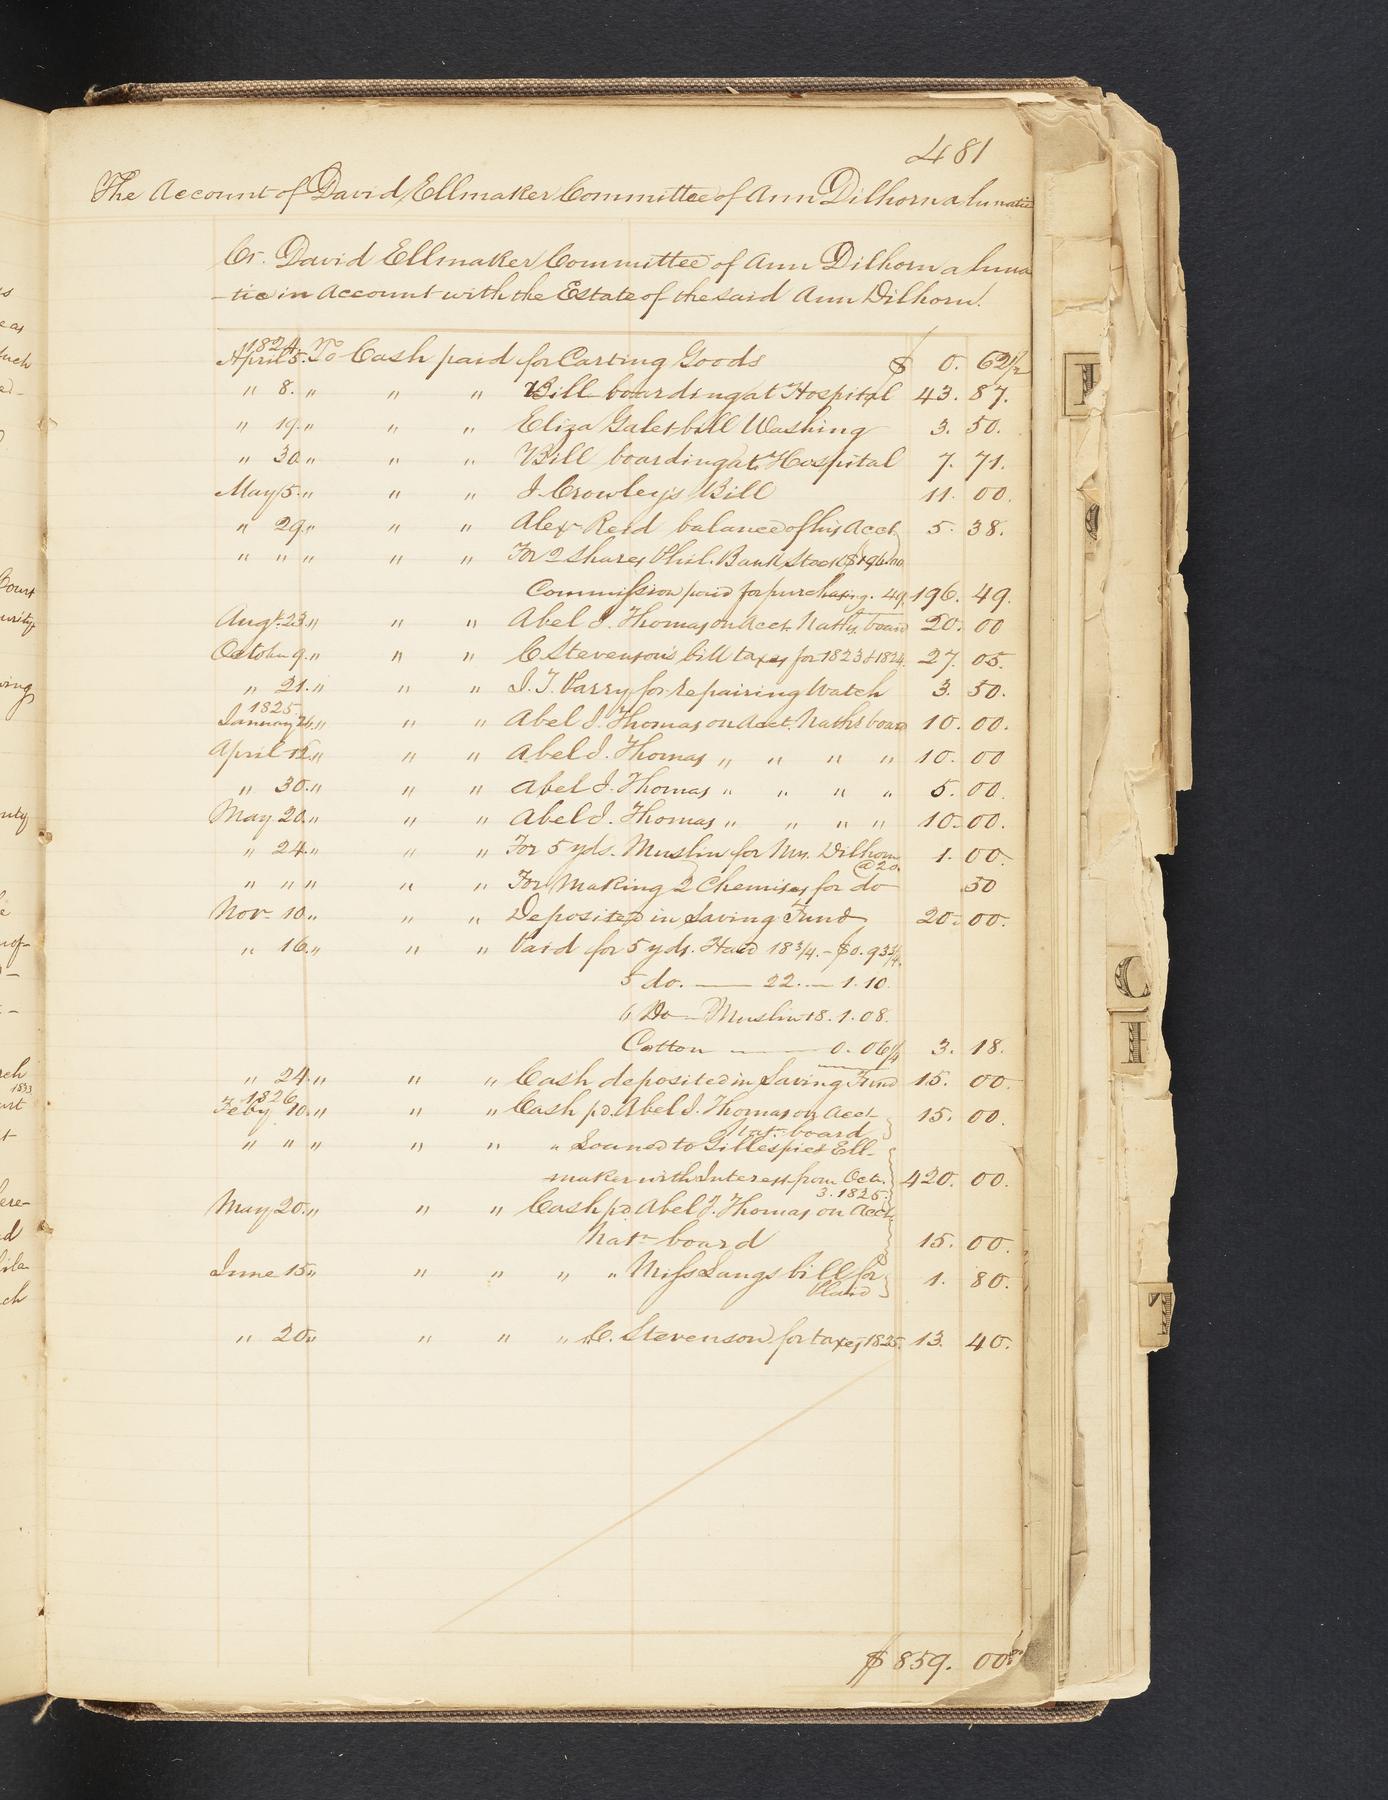 481
The Account of David Ellmaker Committee of Ann Dilhorn a lunatic
Cr. David Ellmaker Committee of Ann Dilhorn a luna
-tic in Account with the Estate of the said Ann Dilhorn.
1824
April 5. To Cash paid for Carting Goods $ 0. 62 1/2
" 8. " " " Bill boarding at Hospital 43. 87.
" 19. " " " Eliza Gales bill Washing 3. 50.
" 30. " " " Bill boarding at Hospital 7. 71.
May 5. " " " J. Crowley's Bill 11. 00.
" 29. " " " Alexr. Reed balance of his Acct. 5. 38.
" " " " " For 2 Shares Phil. Bank Stock $196.00
Commission paid for purchasing. 49. 196. 49.
Augt. 23. " " " Abel I. Thomas on Acct. Nathl. board 20. 00
October 9. " " " C Stevenson's bill taxes for 1823 & 1824. 27. 05.
" 21. " " " I. T. Parry for repairing Watch 3. 50.
1825.
January 24. " " " Abel I. Thomas on Acct. Nathl board 10. 00.
April 12. " " " Abel I. Thomas " " " " 10. 00
" 30. " " " Abel I. Thomas " " " " 5. 00.
May 20. " " " Abel I. Thomas " " " " 10. 00.
" 24. " " " For 5 yds. Muslin for Mrs. Dilhorn 1. 00.
@ 20.
" " " " " For Making 2 Chemises for do 50
Nov. 10. " " " Deposited in Saving Fund 20. 00.
" 16. " " " Paid for 5 yds. 18 3/4. - $0. 93 3/4.
5 do. — 22. — 1. 10.
6 Do — Muslin 18. 1. 08.
Cotton — 0. 06 1/4 3. 18.
" 24. " " " Cash deposited in Saving Fund 15. 00.
1826
Feby 10. " " " Cash pd. Abel I. Thomas on Acct. 15. 00.
Nat. board
" " " " " " Loaned to Gillespie & Ell-
maker with Interest from Octr. 420. 00.
3. 1825.
May 20. " " " Cash pd Abel I. Thomas on Acct.
Natl. board 15. 00.
June 15. " " " " Miss Langs bill for 1. 80.
Plaid
" 20. " " " C. Stevenson for taxes 1825. 13. 40.
$ 859. 00